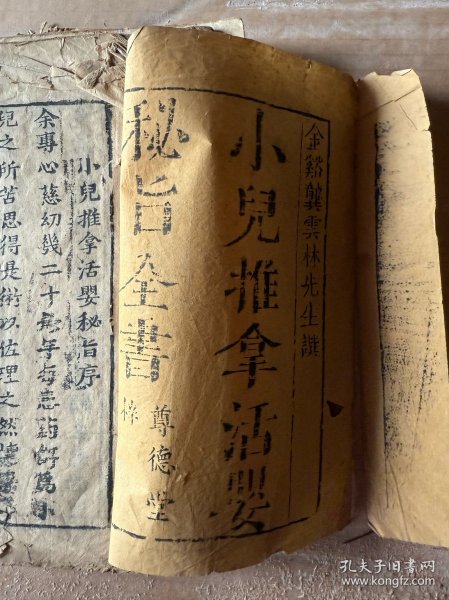 金谿龔雲林先生譔
小兒推拿活嬰
秘旨全書
尊德堂
梓
小兒推拿活嬰秘旨序
余專心慈幼幾二十年每思藥餌為小
兒之所苦思得良術以佐理之然
孔夫子旧书网
www.kongfz.com